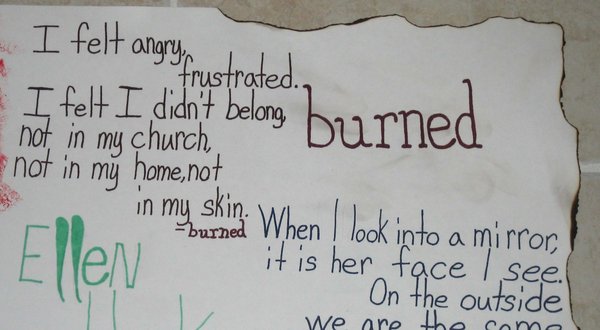 I felt angry,
frustrated.
I felt I didn't belong,
not in my church,
not in my home, not
in my skin.
=burned
burned
Ellen
When I look into a mirror,
it is her face I see.
On the outside
we are the same